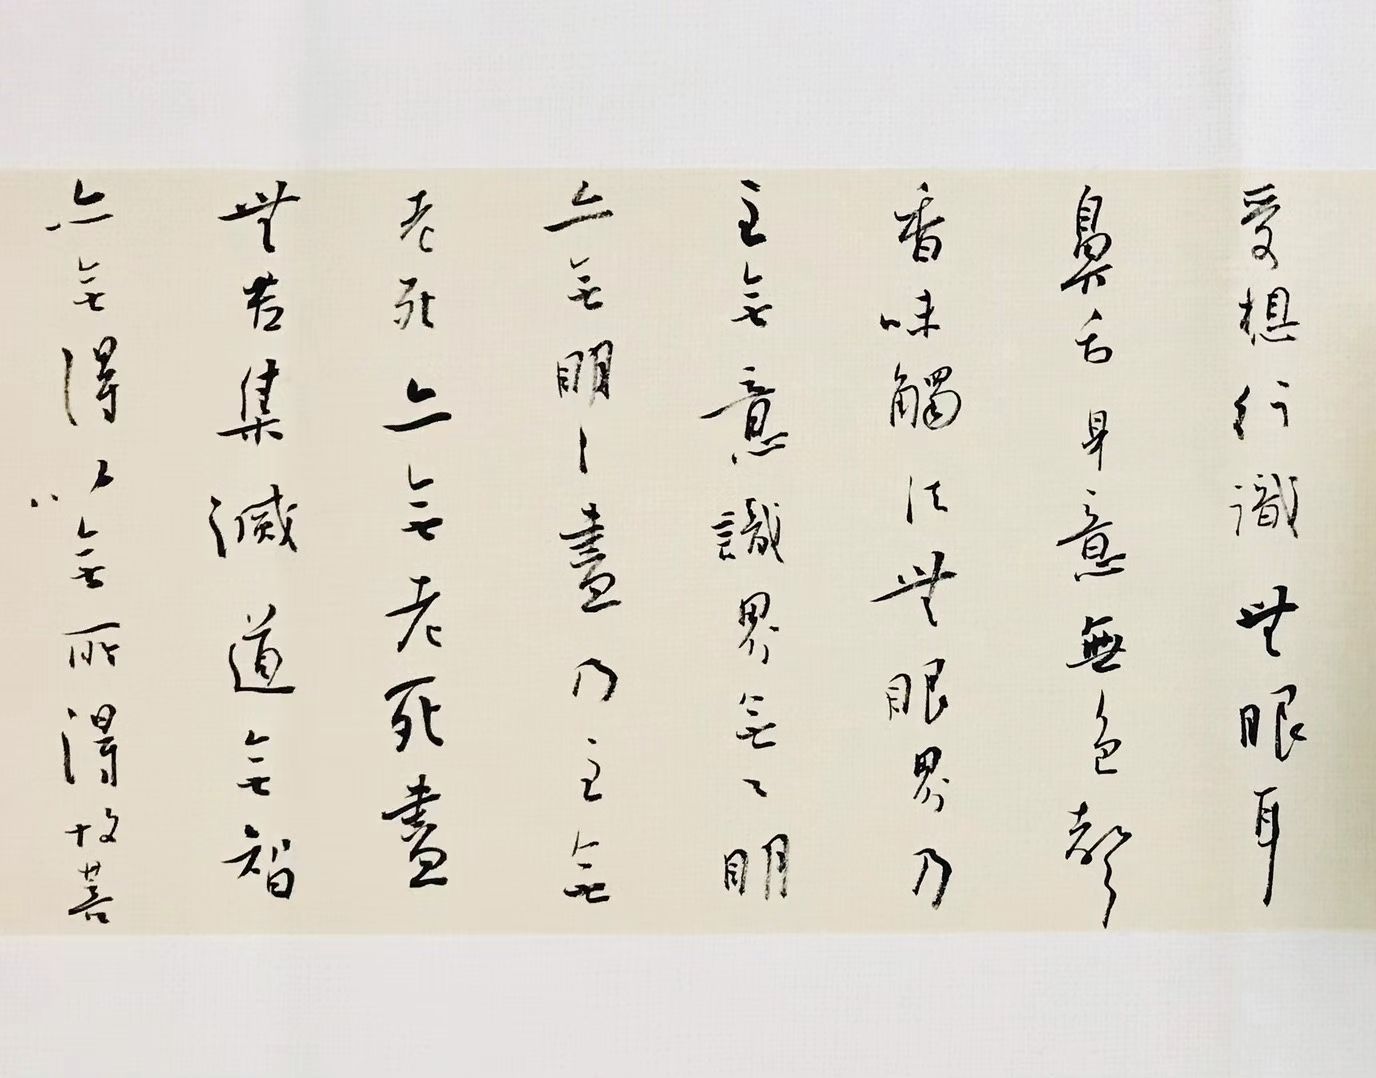 受想行識無眼耳
鼻舌身意無色聲
香味觸法無眼界乃
至無意識界無々明
亦無明盡乃至無
老死亦無老死盡
無苦集滅道無智
亦無得以無所得故菩